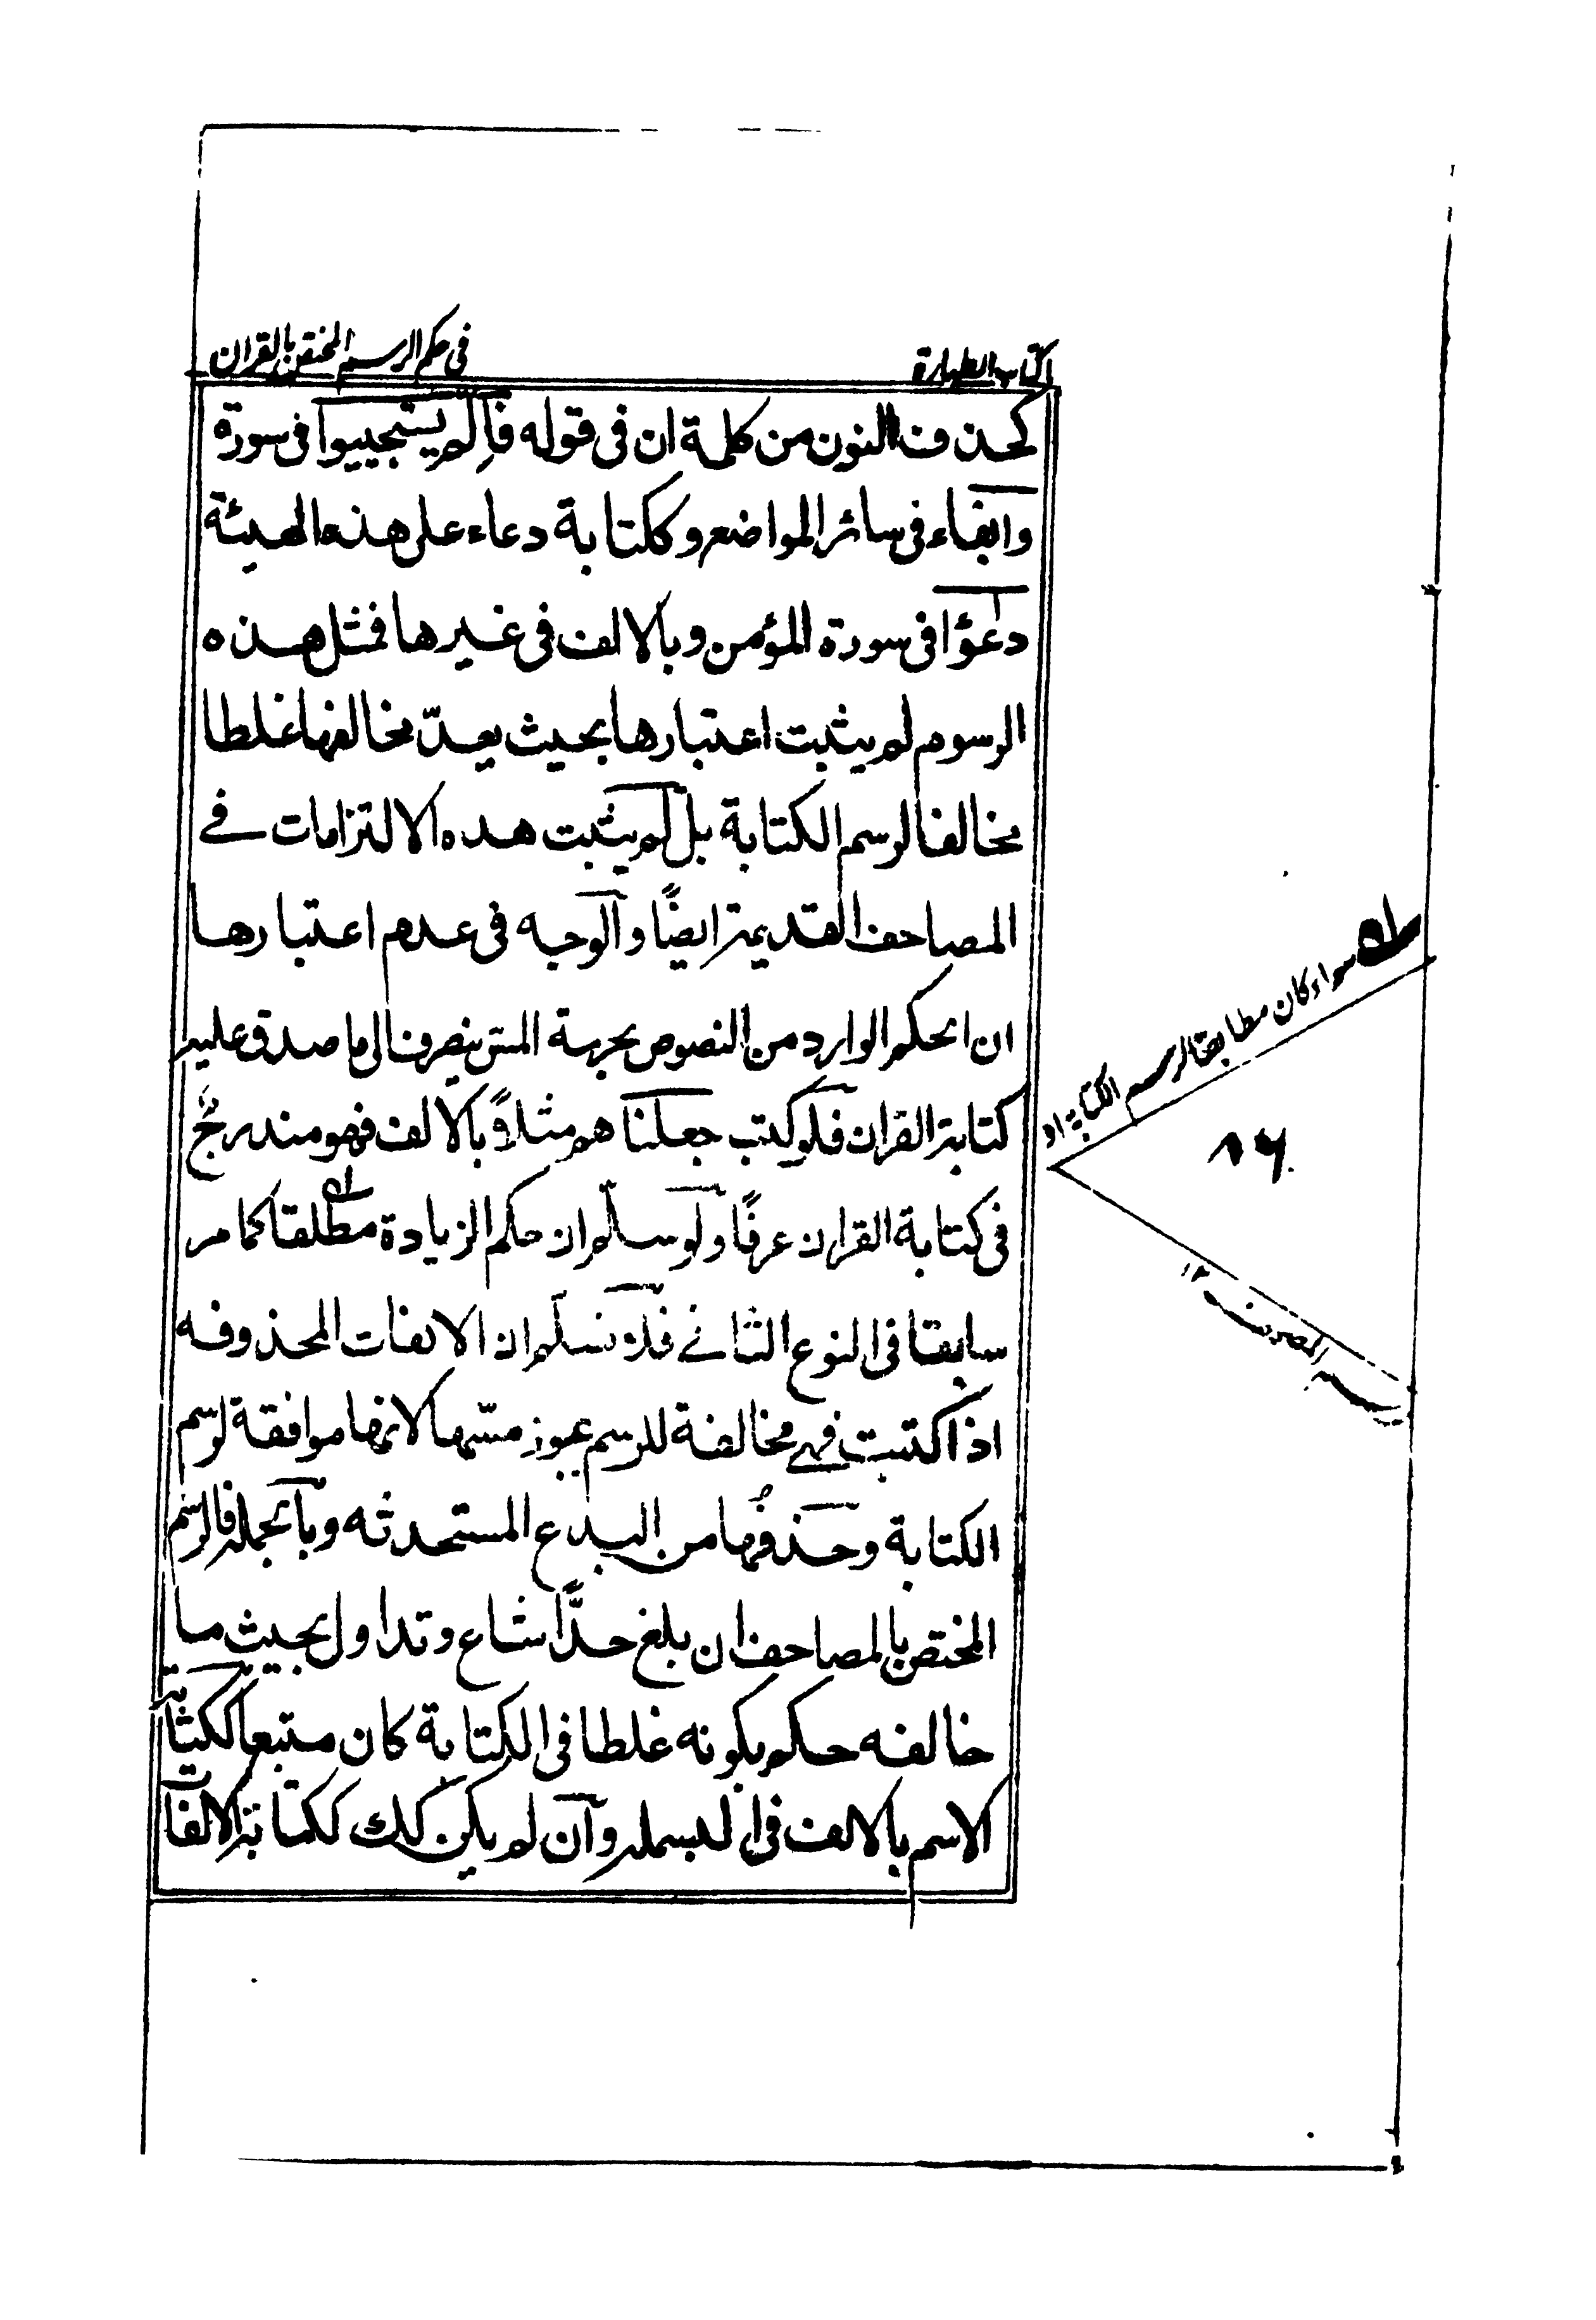 كتاب الطهارة
في حكم الرسم المختص بالقران
كحذف النون من كلمة ان في قوله فالم يستجيبوا في سورة
وابقاء في سائر المواضع وككتابة دعاء على هذه الهيئة
دعؤا في سورة المؤمن وبالالف في غيرها فمثل هذه
الرسوم لم يثبت اعتبارها بحيث يعدّ مخالفها غلطا
مخالفا لرسم الكتابة بل لم يثبت هذه الالتزامات في
المصاحف القديمة ايضًا والوجه في عدم اعتبارها
ان الحكم الوارد من النصوص بحرمة المس ينصرف الى ما صدق عليه
كتابة القران فلو كتب جعلنا هم مثلاً بالالف فهو مندرجٌ
في كتابة القران عرفًا ولو سلم ان حكم الزيادة مطلقا كما مر
سابقا في النوع الثاني فلا نسلم ان الالفات المحذوفه
اذا كتبت فهي مخالفة للرسم يجوز مسّها لانها موافقة لرسم
الكتابة وحذفُها من البدع المستحدثه وبالجمله فالرسم
المختص بالمصاحف ان بلغ حدًّا شاع وتداول بحيث ما
خالفه حكم بكونه غلطا في الكتابة كان متبعا ككتابة
الاسم بالالف في البسمله وان لم يكن كك ككتابة الالفات
سواء كان مطابقا لرسم الكتابة او
المصحف ١٢
١٦